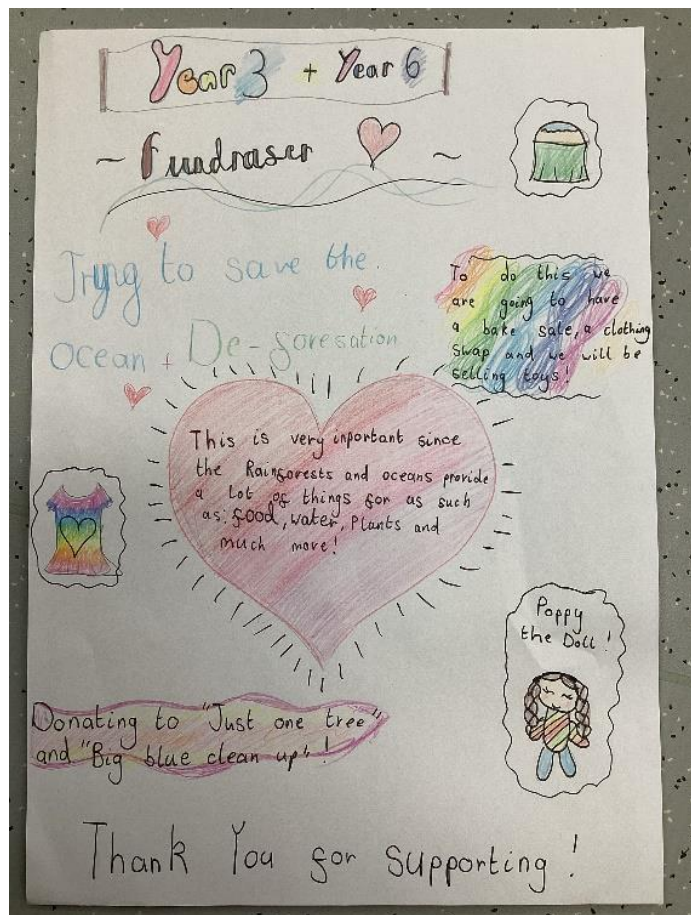 Year 3 + Year 6
~ Fundraser ~
Tryng to save the.
Ocean + De-foresation
To do this we
are going to have
a bake sale, a clothing
swap and we will be
selling toys!
This is very inportant since
the Rainforests and oceans provide
a lot of things for as such
as: food, water, Plants and
much more!
Poppy
the Doll!
Donating to "Just one tree"
and "Big blue clean up"!
Thank You for supporting!